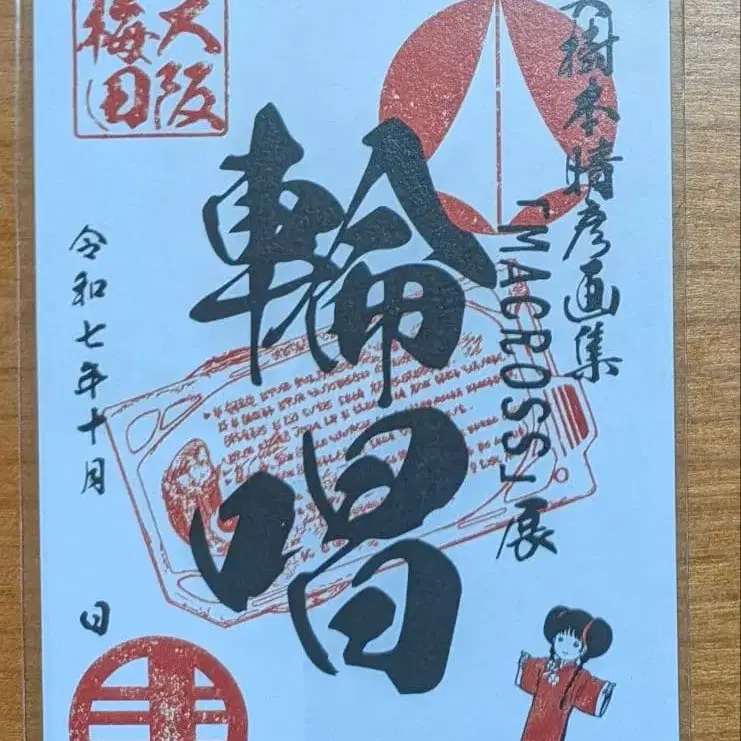 美樹本晴彦画集
「MACROSS」展
大阪
梅田
輪唱
令和七年十月
日